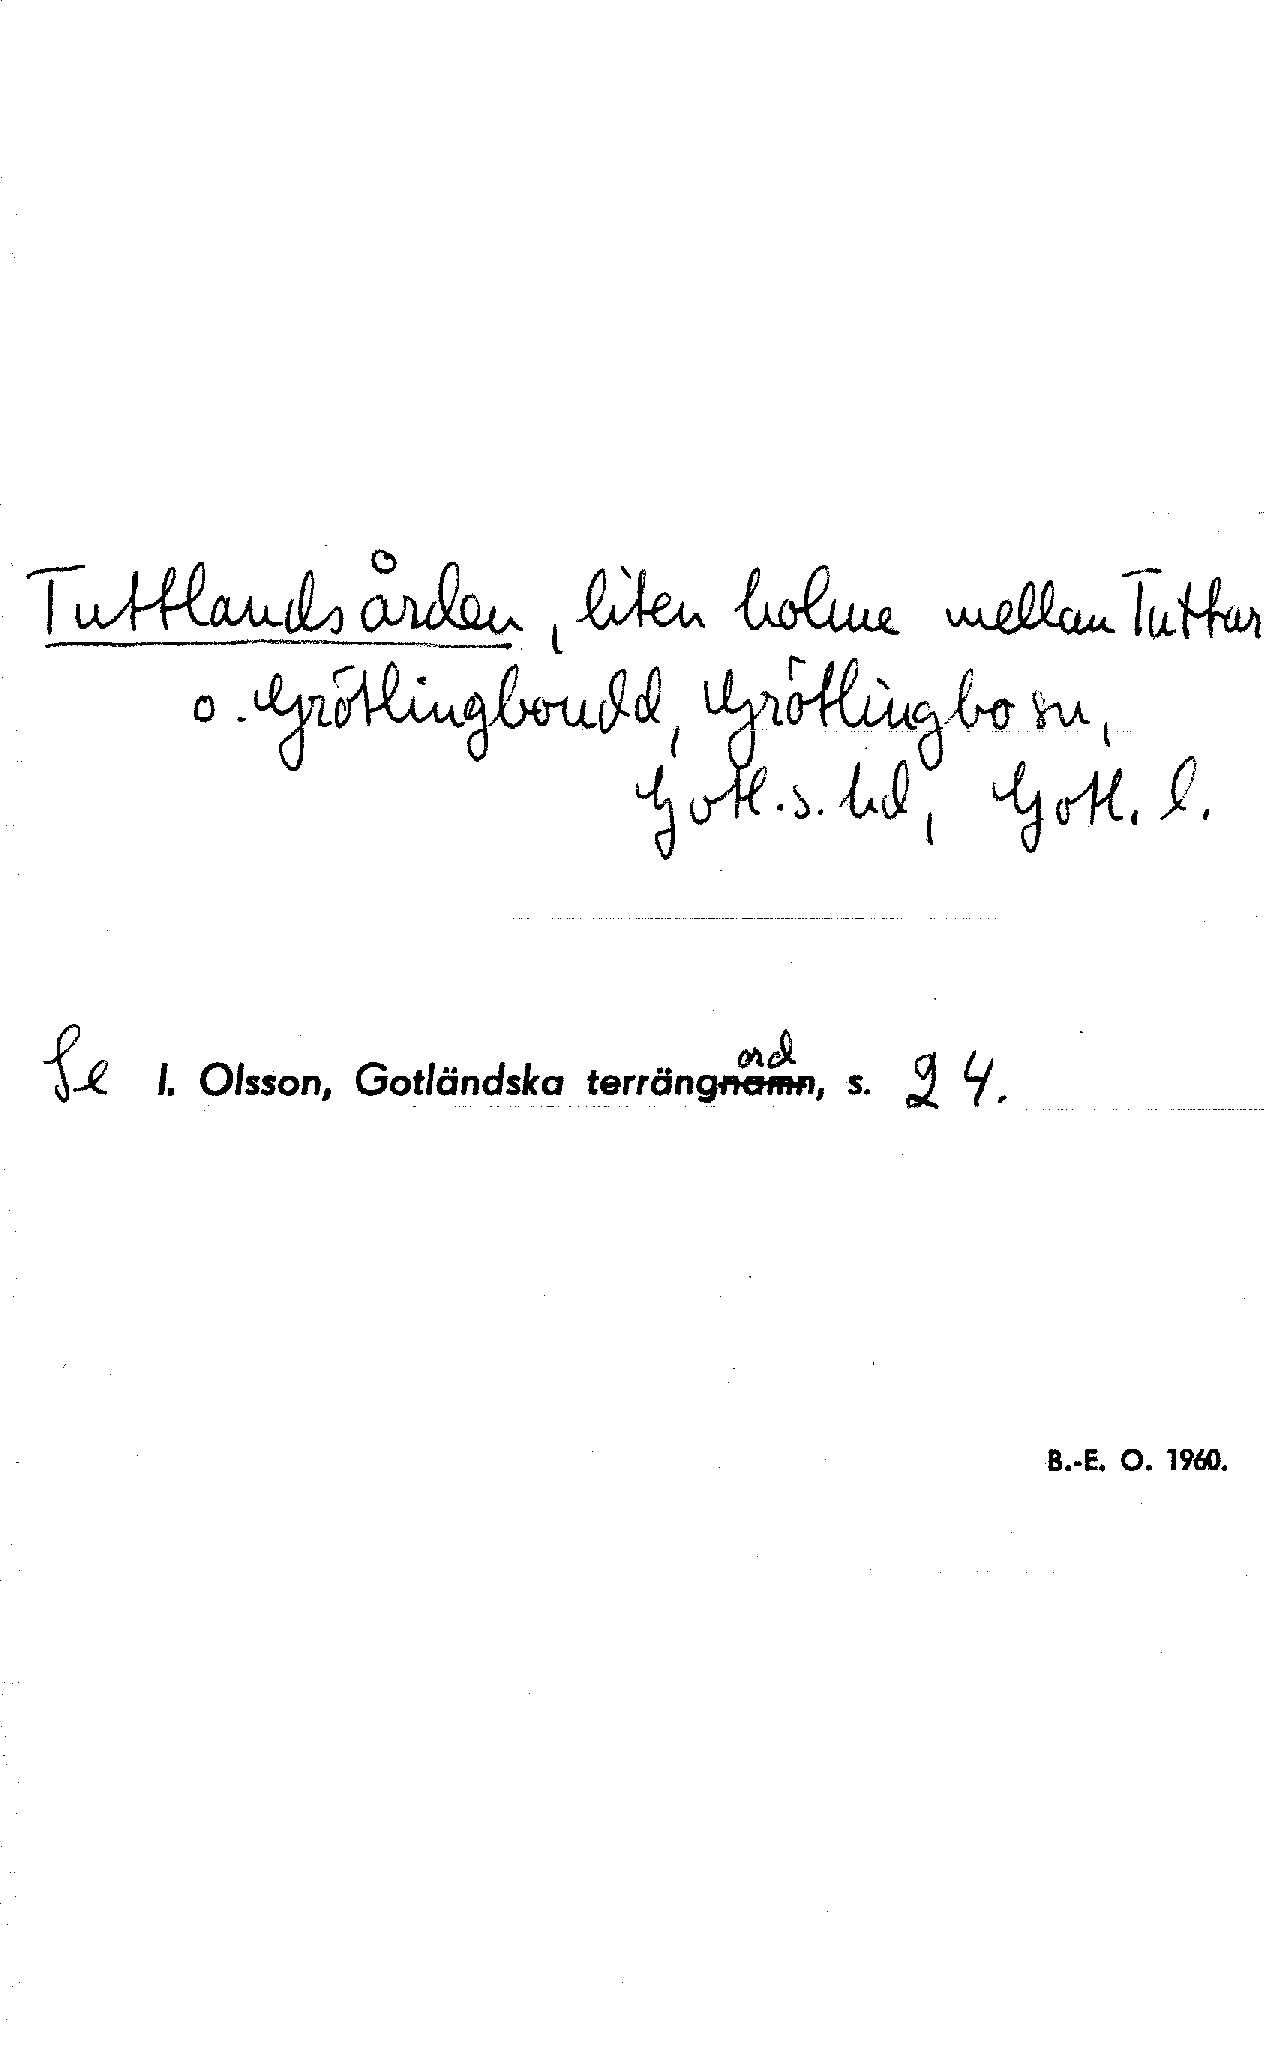 Tuttlandsården, liten holme mellan Tuttar
o. Grötlingboudd, Grötlingbo sn,
Gotl. s. hd, Gotl. l.
Se I. Olsson, Gotländska terrängnamn ord, s. 24.
B.-E. O. 1960.